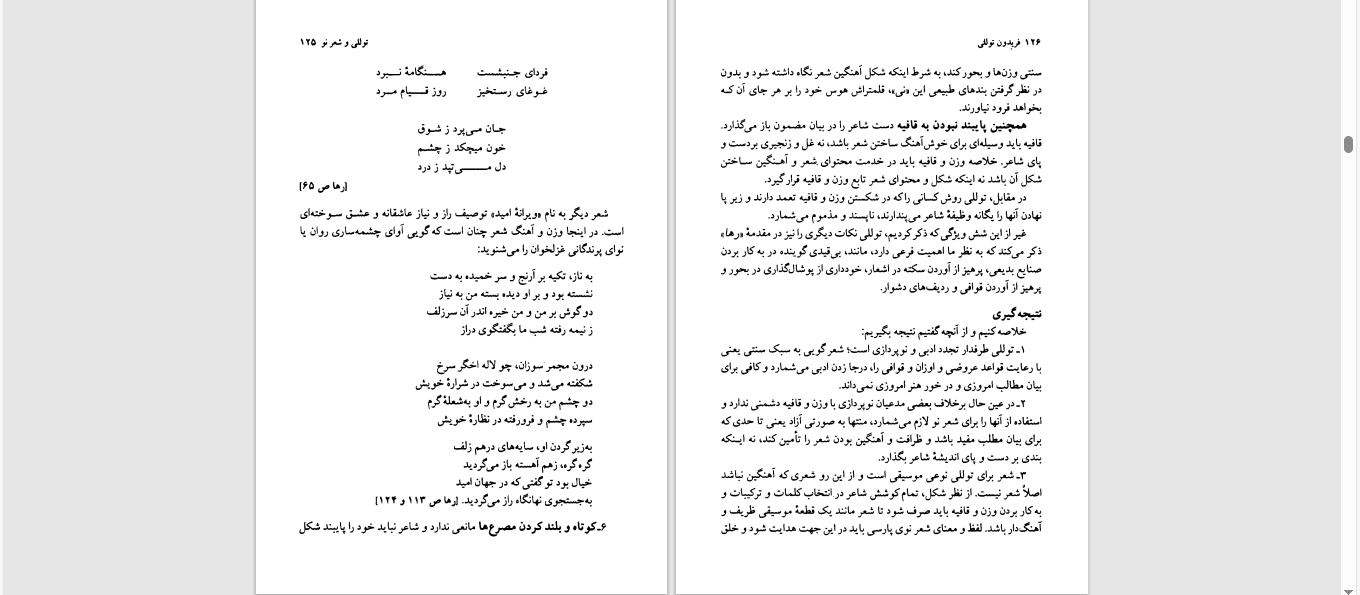 توللی و شعر نو ۱۲۵
فردای جـنبشست هـــنگامهٔ نـــبرد
غـوغای رسـتخیز روز قــــیام مــرد
جـان مـی‌پرد ز شـوق
خون میچکد ز چشـم
دل مــــــی‌تپد ز درد
[رها ص ۶۵]
شعر دیگر به نام «ویرانهٔ امید» توصیف راز و نیاز عاشقانه و عشـق سـوخته‌ای
است. در اینجا وزن و آهنگ شعر چنان است که گویی آوای چشمه‌ساری روان یا
نوای پرندگانی غزلخوان را می‌شنوید:
به ناز، تکیه بر آرنج و سر خمیده به دست
نشسته بود و بر او دیده بسته من به نیاز
دو گوش بر من و من خیره اندر آن سرزلف
ز نیمه رفته شب ما بگفتگوی دراز
درون مجمر سوزان، چو لاله اخگر سرخ
شکفته می‌شد و می‌سوخت در شرارهٔ خویش
دو چشم من به رخش گرم و او به‌شعلهٔ گرم
سپرده چشم و فرورفته در نظارهٔ خویش
به‌زیر گردن او، سایه‌های درهم زلف
گره گره، زهم آهسته باز می‌گردید
خیال بود تو گفتی که در جهان امید
به‌جستجوی نهانگاه راز می‌گردید. [رها ص ۱۱۳ و ۱۲۴]
۶ـ کوتاه و بلند کردن مصرع‌ها مانعی ندارد و شاعر نباید خود را پایبند شکل
۱۲۶ فریدون توللی
سنتی وزن‌ها و بحور کند، به شرط اینکه شکل آهنگین شعر نگاه داشته شود و بدون
در نظر گرفتن بندهای طبیعی این «نی»، قلمتراش هوس خود را بر هر جای آن کـه
بخواهد فرود نیاورند.
همچنین پایبند نبودن به قافیه دست شاعر را در بیان مضمون باز می‌گذارد.
قافیه باید وسیله‌ای برای خوش‌آهنگ ساختن شعر باشد، نه غل و زنجیری بردست و
پای شاعر. خلاصه وزن و قافیه باید در خدمت محتوای شعر و آهـنگین سـاختن
شکل آن باشد نه اینکه شکل و محتوای شعر تابع وزن و قافیه قرار گیرد.
در مقابل، توللی روش کسانی را که در شکستن وزن و قافیه تعمد دارند و زیر پا
نهادن آنها را یگانه وظیفهٔ شاعر می‌پندارند، ناپسند و مذموم می‌شمارد.
غیر از این شش ویژگی که ذکر کردیم، توللی نکات دیگری را نیز در مقدمهٔ «رها»
ذکر می‌کند که به نظر ما اهمیت فرعی دارد، مانند، بی‌قیدی گوینده در به کار بردن
صنایع بدیعی، پرهیز از آوردن سکته در اشعار، خودداری از پوشال‌گذاری در بحور و
پرهیز از آوردن قوافی و ردیف‌های دشوار.
نتیجه‌گیری
خلاصه کنیم و از آنچه گفتیم نتیجه بگیریم:
۱ـ توللی طرفدار تجدد ادبی و نوپردازی است؛ شعر گویی به سبک سنتی یعنی
با رعایت قواعد عروضی و اوزان و قوافی را، درجا زدن ادبی می‌شمارد و کافی برای
بیان مطالب امروزی و در خور هنر امروزی نمی‌داند.
۲ـ در عین حال برخلاف بعضی مدعیان نوپردازی با وزن و قافیه دشمنی ندارد و
استفاده از آنها را برای شعر نو لازم می‌شمارد، منتها به صورتی آزاد یعنی تا حدی که
برای بیان مطلب مفید باشد و ظرافت و آهنگین بودن شعر را تأمین کند، نه ایـنکه
بندی بر دست و پای اندیشهٔ شاعر بگذارد.
۳ـ شعر برای توللی نوعی موسیقی است و از این رو شعری که آهنگین نباشد
اصلاً شعر نیست. از نظر شکل، تمام کوشش شاعر در انتخاب کلمات و ترکیبات و
به کار بردن وزن و قافیه باید صرف شود تا شعر مانند یک قطعهٔ موسیقی ظریف و
آهنگ‌دار باشد. لفظ و معنای شعر نوی پارسی باید در این جهت هدایت شود و خلق